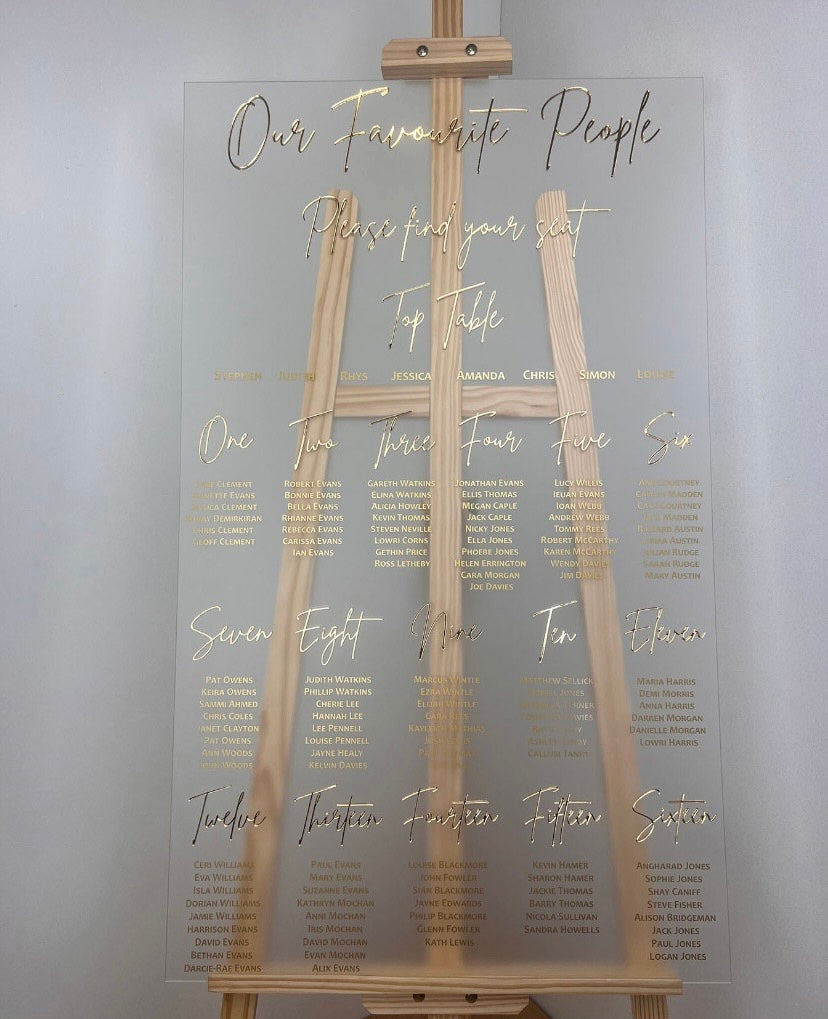 Our Favourite People
Please find your seat
Top Table
Stephen Judith Rhys Jessica Amanda Chris Simon Louise
One
Clement
Annette Evans
Jessica Clement
Demirkiran
Chris Clement
Geoff Clement
Two
Robert Evans
Bonnie Evans
Bella Evans
Rhianne Evans
Rebecca Evans
Carissa Evans
Ian Evans
Three
Gareth Watkins
Elina Watkins
Alicia Howley
Kevin Thomas
Steven Neville
Lowri Corns
Gethin Price
Ross Letheby
Four
Jonathan Evans
Ellis Thomas
Megan Caple
Jack Caple
Nicky Jones
Ella Jones
Phoebe Jones
Helen Errington
Cara Morgan
Joe Davies
Five
Lucy Willis
Ieuan Evans
Ioan Webb
Andrew Webb
Tommy Rees
Robert McCarthy
Karen McCarthy
Wendy Davies
Jim Davies
Six
Courtney
Madden
Courtney
Madden
Richard Austin
Austin
Julian Rudge
Sarah Rudge
Mary Austin
Seven
Pat Owens
Keira Owens
Sammi Ahmed
Chris Coles
Janet Clayton
Pat Owens
Ann Woods
Woods
Eight
Judith Watkins
Phillip Watkins
Cherie Lee
Hannah Lee
Lee Pennell
Louise Pennell
Jayne Healy
Kelvin Davies
Nine
Marcus Wintle
Ezra Wintle
Elijah Wintle
Cara Rees
Kayleigh Mathias
Ten
Matthew Sellick
Jones
Callum
Eleven
Maria Harris
Demi Morris
Anna Harris
Darren Morgan
Danielle Morgan
Lowri Harris
Twelve
Ceri Williams
Eva Williams
Isla Williams
Dorian Williams
Jamie Williams
Harrison Evans
David Evans
Bethan Evans
Darcie-Rae Evans
Thirteen
Paul Evans
Mary Evans
Suzanne Evans
Kathryn Mochan
Anni Mochan
Iris Mochan
David Mochan
Evan Mochan
Alix Evans
Fourteen
Louise Blackmore
John Fowler
Sian Blackmore
Jayne Edwards
Philip Blackmore
Glenn Fowler
Kath Lewis
Fifteen
Kevin Hamer
Sharon Hamer
Jackie Thomas
Barry Thomas
Nicola Sullivan
Sandra Howells
Sixteen
Angharad Jones
Sophie Jones
Shay Caniff
Steve Fisher
Alison Bridgeman
Jack Jones
Paul Jones
Logan Jones